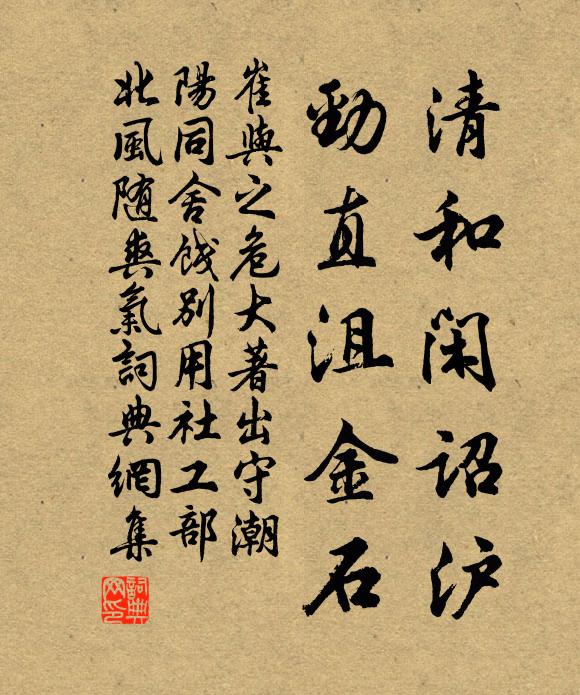 清和閑詔沪
勁直沮金石
崔與之危大著出守潮
陽同舍餞別用社工部
北風随爽氣詞典網集
詞典网印